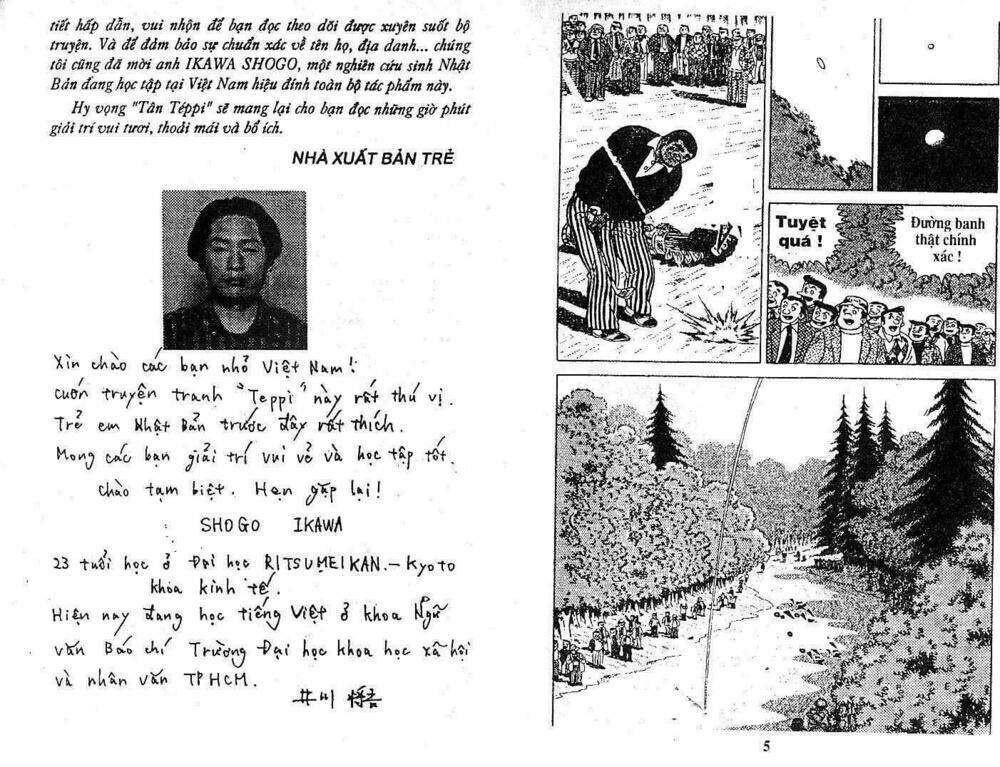 tiết hấp dẫn, vui nhộn để bạn đọc theo dõi được xuyên suốt bộ
truyện. Và để đảm bảo sự chuẩn xác về tên họ, địa danh... chúng
tôi cũng đã mời anh IKAWA SHOGO, một nghiên cứu sinh Nhật
Bản đang học tập tại Việt Nam hiệu đính toàn bộ tác phẩm này.
Hy vọng "Tân Téppi" sẽ mang lại cho bạn đọc những giờ phút
giải trí vui tươi, thoải mái và bổ ích.
NHÀ XUẤT BẢN TRẺ
Xin chào các bạn nhỏ Việt Nam!
cuốn truyện tranh "Teppi" này rất thú vị.
Trẻ em Nhật Bản trước đây rất thích.
Mong các bạn giải trí vui vẻ và học tập tốt.
chào tạm biệt. Hẹn gặp lại!
SHOGO IKAWA
23 tuổi học ở Đại học RITSUMEIKAN.-Kyoto
khoa kinh tế.
Hiện nay đang học tiếng Việt ở khoa Ngữ
văn Báo chí Trường Đại học khoa học xã hội
và nhân văn TPHCM.
井川
Tuyệt
quá !
Đường banh
thật chính
xác !
5